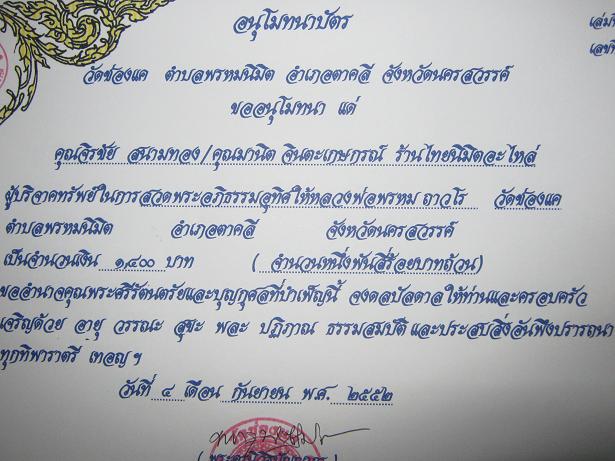 อนุโมทนาบัตร
เล่มที่
เลขที่
วัดช่องแค ตำบลพรหมนิมิต อำเภอตาคลี จังหวัดนครสวรรค์
ขออนุโมทนา แด่
คุณจิรชัย สนามทอง/คุณมานิต จินตะเกษกรณ์ ร้านไทยนิมิตอะไหล่
ผู้บริจาคทรัพย์ในการสวดพระอภิธรรมอุทิศให้หลวงพ่อพรหม ถาวโร วัดช่องแค
ตำบลพรหมนิมิต อำเภอตาคลี จังหวัดนครสวรรค์
เป็นจำนวนเงิน ๑,๔๐๐ บาท ( จำนวนหนึ่งพันสี่ร้อยบาทถ้วน)
ขออำนาจคุณพระศรีรัตนตรัยและบุญกุศลที่บำเพ็ญนี้ จงดลบัลดาลให้ท่านและครอบครัว
เจริญด้วย อายุ วรรณะ สุขะ พละ ปฏิภาณ ธรรมสมบัติ และประสบสิ่งอันพึงปรารถนา
ทุกทิพาราตรี เทอญฯ
วันที่ ๔ เดือน กันยายน พ.ศ. ๒๕๕๒